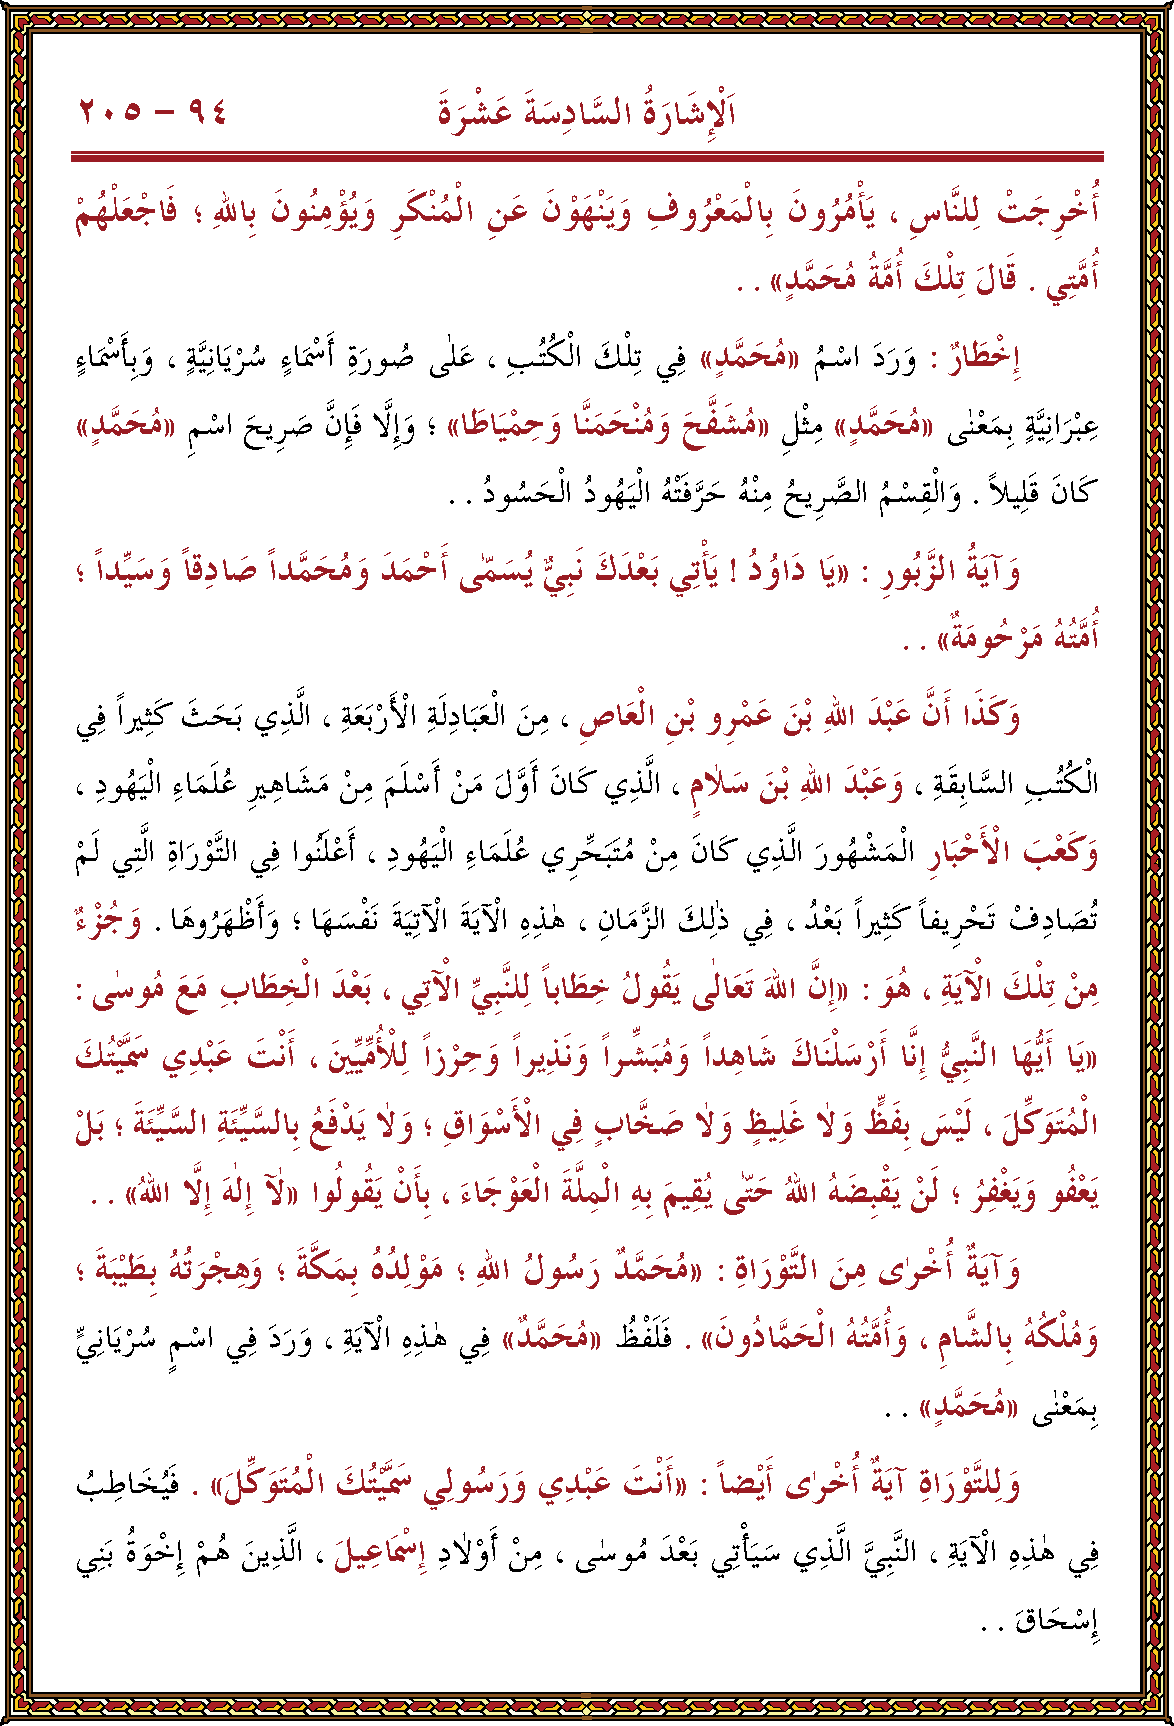 اَلْإِشَارَةُ السَّادِسَةَ عَشْرَةَ ٩٤ – ٢٠٥
أُخْرِجَتْ لِلنَّاسِ ، يَأْمُرُونَ بِالْمَعْرُوفِ وَيَنْهَوْنَ عَنِ الْمُنْكَرِ وَيُؤْمِنُونَ بِاللهِ ؛ فَاجْعَلْهُمْ
أُمَّتِي . قَالَ تِلْكَ أُمَّةُ مُحَمَّدٍ» . .
إِخْطَارٌ : وَرَدَ اسْمُ «مُحَمَّدٍ» فِي تِلْكَ الْكُتُبِ ، عَلٰى صُورَةِ أَسْمَاءٍ سُرْيَانِيَّةٍ ، وَبِأَسْمَاءٍ
عِبْرَانِيَّةٍ بِمَعْنٰى «مُحَمَّدٍ» مِثْلِ «مُشَفَّحَ وَمُنْحَمَنَّا وَحِمْيَاطَا» ؛ وَإِلَّا فَإِنَّ صَرِيحَ اسْمِ «مُحَمَّدٍ»
كَانَ قَلِيلاً . وَالْقِسْمُ الصَّرِيحُ مِنْهُ حَرَّفَتْهُ الْيَهُودُ الْحَسُودُ . .
وَآيَةُ الزَّبُورِ : «يَا دَاوُدُ ! يَأْتِي بَعْدَكَ نَبِيٌّ يُسَمّٰى أَحْمَدَ وَمُحَمَّداً صَادِقاً وَسَيِّداً ؛
أُمَّتُهُ مَرْحُومَةٌ» . .
وَكَذَا أَنَّ عَبْدَ اللهِ بْنَ عَمْرِو بْنِ الْعَاصِ ، مِنَ الْعَبَادِلَةِ الْأَرْبَعَةِ ، الَّذِي بَحَثَ كَثِيراً فِي
الْكُتُبِ السَّابِقَةِ ، وَعَبْدَ اللهِ بْنَ سَلاٰمٍ ، الَّذِي كَانَ أَوَّلَ مَنْ أَسْلَمَ مِنْ مَشَاهِيرِ عُلَمَاءِ الْيَهُودِ ،
وَكَعْبَ الْأَحْبَارِ الْمَشْهُورَ الَّذِي كَانَ مِنْ مُتَبَحِّرِي عُلَمَاءِ الْيَهُودِ ، أَعْلَنُوا فِي التَّوْرَاةِ الَّتِي لَمْ
تُصَادِفْ تَحْرِيفاً كَثِيراً بَعْدُ ، فِي ذٰلِكَ الزَّمَانِ ، هٰذِهِ الْآيَةَ الْآتِيَةَ نَفْسَهَا ؛ وَأَظْهَرُوهَا . وَجُزْءٌ
مِنْ تِلْكَ الْآيَةِ ، هُوَ : «إِنَّ اللهَ تَعَالٰى يَقُولُ خِطَاباً لِلنَّبِيِّ الْآتِي ، بَعْدَ الْخِطَابِ مَعَ مُوسٰى :
«يَا أَيُّهَا النَّبِيُّ إِنَّا أَرْسَلْنَاكَ شَاهِداً وَمُبَشِّراً وَنَذِيراً وَحِرْزاً لِلْأُمِّيِّينَ ، أَنْتَ عَبْدِي سَمَّيْتُكَ
الْمُتَوَكِّلَ ، لَيْسَ بِفَظٍّ وَلاٰ غَلِيظٍ وَلاٰ صَخَّابٍ فِي الْأَسْوَاقِ ؛ وَلاٰ يَدْفَعُ بِالسَّيِّئَةِ السَّيِّئَةَ ؛ بَلْ
يَعْفُو وَيَغْفِرُ ؛ لَنْ يَقْبِضَهُ اللهُ حَتّٰى يُقِيمَ بِهِ الْمِلَّةَ الْعَوْجَاءَ ، بِأَنْ يَقُولُوا «لاٰۤ إِلٰهَ إِلَّا اللهُ» . .
وَآيَةٌ أُخْرٰى مِنَ التَّوْرَاةِ : «مُحَمَّدٌ رَسُولُ اللهِ ؛ مَوْلِدُهُ بِمَكَّةَ ؛ وَهِجْرَتُهُ بِطَيْبَةَ ؛
وَمُلْكُهُ بِالشَّامِ ، وَأُمَّتُهُ الْحَمَّادُونَ» . فَلَفْظُ «مُحَمَّدٌ» فِي هٰذِهِ الْآيَةِ ، وَرَدَ فِي اسْمٍ سُرْيَانِيٍّ
بِمَعْنٰى «مُحَمَّدٍ» . .
وَلِلتَّوْرَاةِ آيَةٌ أُخْرٰى أَيْضاً : «أَنْتَ عَبْدِي وَرَسُولِي سَمَّيْتُكَ الْمُتَوَكِّلَ» . فَيُخَاطِبُ
فِي هٰذِهِ الْآيَةِ ، النَّبِيَّ الَّذِي سَيَأْتِي بَعْدَ مُوسٰى ، مِنْ أَوْلاٰدِ إِسْمَاعِيلَ ، الَّذِينَ هُمْ إِخْوَةُ بَنِي
إِسْحَاقَ . .